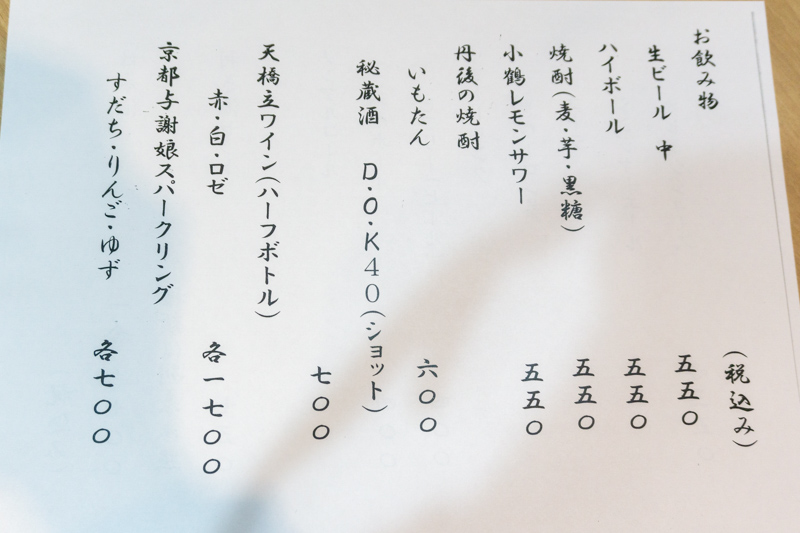 お飲み物
(税込み)
生ビール 中 五五〇
ハイボール 五五〇
焼酎(麦・芋・黒糖) 五五〇
小鶴レモンサワー 五五〇
丹後の焼酎
いもたん 六〇〇
秘蔵酒 D.O.K40(ショット)
七〇〇
天橋立ワイン(ハーフボトル)
赤・白・ロゼ 各一七〇〇
京都与謝娘スパークリング
すだち・りんご・ゆず 各七〇〇